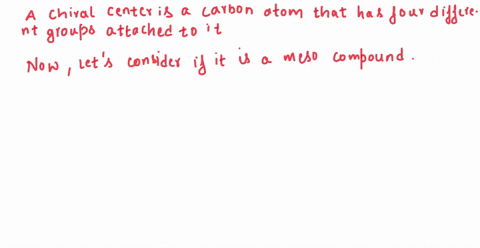 A chiral center is a carbon atom that has four differe-
nt groups attached to it
Now, let's consider if it is a meso compound.